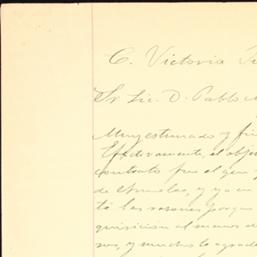 C. Victoria
Sr Lic. D. Pablo
Muy estimado y fi
Efectivamente, el obje
contrato fue el que
de Ornelas, y ya en
tó las razones porque
quisición al menos de
sos, y mucho lo agrade